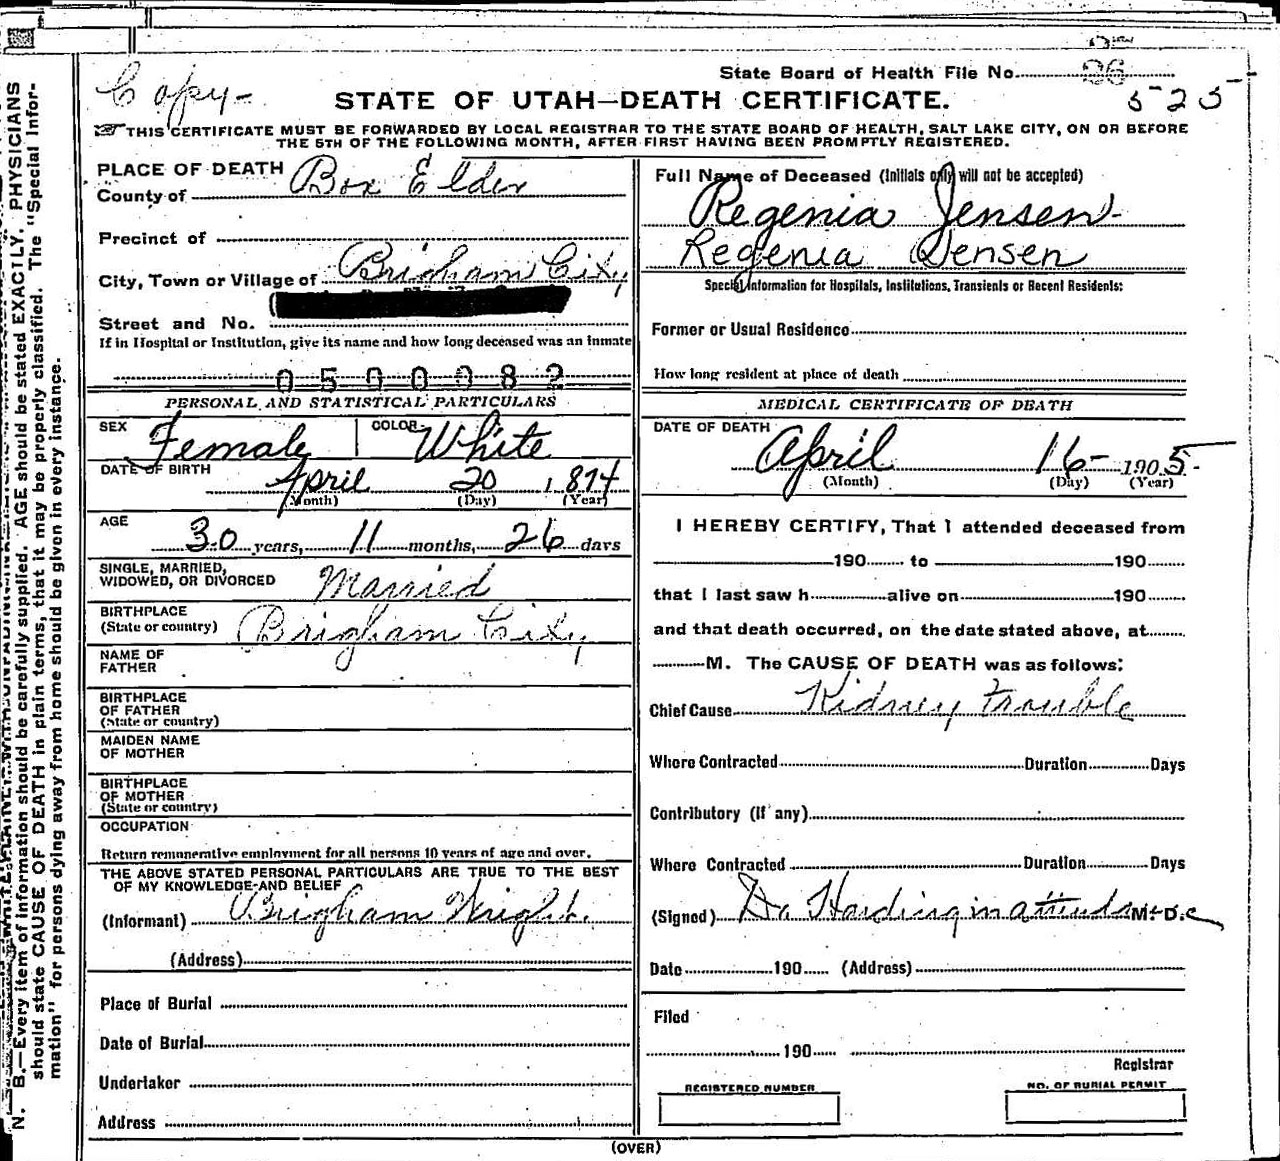 State Board of Health File No. 26
525
Copy-
STATE OF UTAH—DEATH CERTIFICATE.
THIS CERTIFICATE MUST BE FORWARDED BY LOCAL REGISTRAR TO THE STATE BOARD OF HEALTH, SALT LAKE CITY, ON OR BEFORE
THE 5TH OF THE FOLLOWING MONTH, AFTER FIRST HAVING BEEN PROMPTLY REGISTERED.
PLACE OF DEATH
County of Box Elder
Precinct of
City, Town or Village of Brigham City
Street and No.
If in Hospital or Institution, give its name and how long deceased was an inmate
0500082
PERSONAL AND STATISTICAL PARTICULARS
SEX Female COLOR White
DATE OF BIRTH
April 20 1874
(Month) (Day) (Year)
AGE
30 years, 11 months, 26 days
SINGLE, MARRIED,
WIDOWED, OR DIVORCED Married
BIRTHPLACE
(State or country) Brigham City
NAME OF
FATHER
BIRTHPLACE
OF FATHER
(State or country)
MAIDEN NAME
OF MOTHER
BIRTHPLACE
OF MOTHER
(State or country)
OCCUPATION
Return remunerative employment for all persons 10 years of age and over.
THE ABOVE STATED PERSONAL PARTICULARS ARE TRUE TO THE BEST
OF MY KNOWLEDGE AND BELIEF
(Informant) Brigham Wright.
(Address)
Place of Burial
Date of Burial
Undertaker
Address
Full Name of Deceased (Initials only will not be accepted)
Regenia Jensen
Regenia Jensen
Special Information for Hospitals, Institutions, Transients or Recent Residents:
Former or Usual Residence
How long resident at place of death
MEDICAL CERTIFICATE OF DEATH
DATE OF DEATH
April 16- 1905-
(Month) (Day) (Year)
I HEREBY CERTIFY, That I attended deceased from
190 to 190
that I last saw h alive on 190
and that death occurred, on the date stated above, at
M. The CAUSE OF DEATH was as follows:
Chief Cause Kidney trouble
Where Contracted Duration Days
Contributory (if any)
Where Contracted Duration Days
(Signed) Dr Harding in attendance M. D.
Date 190 (Address)
Filed
190
Registrar
REGISTERED NUMBER NO. OF BURIAL PERMIT
(OVER)
N. B.—Every item of information should be carefully supplied. AGE should be stated EXACTLY. PHYSICIANS
should state CAUSE OF DEATH in plain terms, that it may be properly classified. The "Special Infor-
mation" for persons dying away from home should be given in every instance.